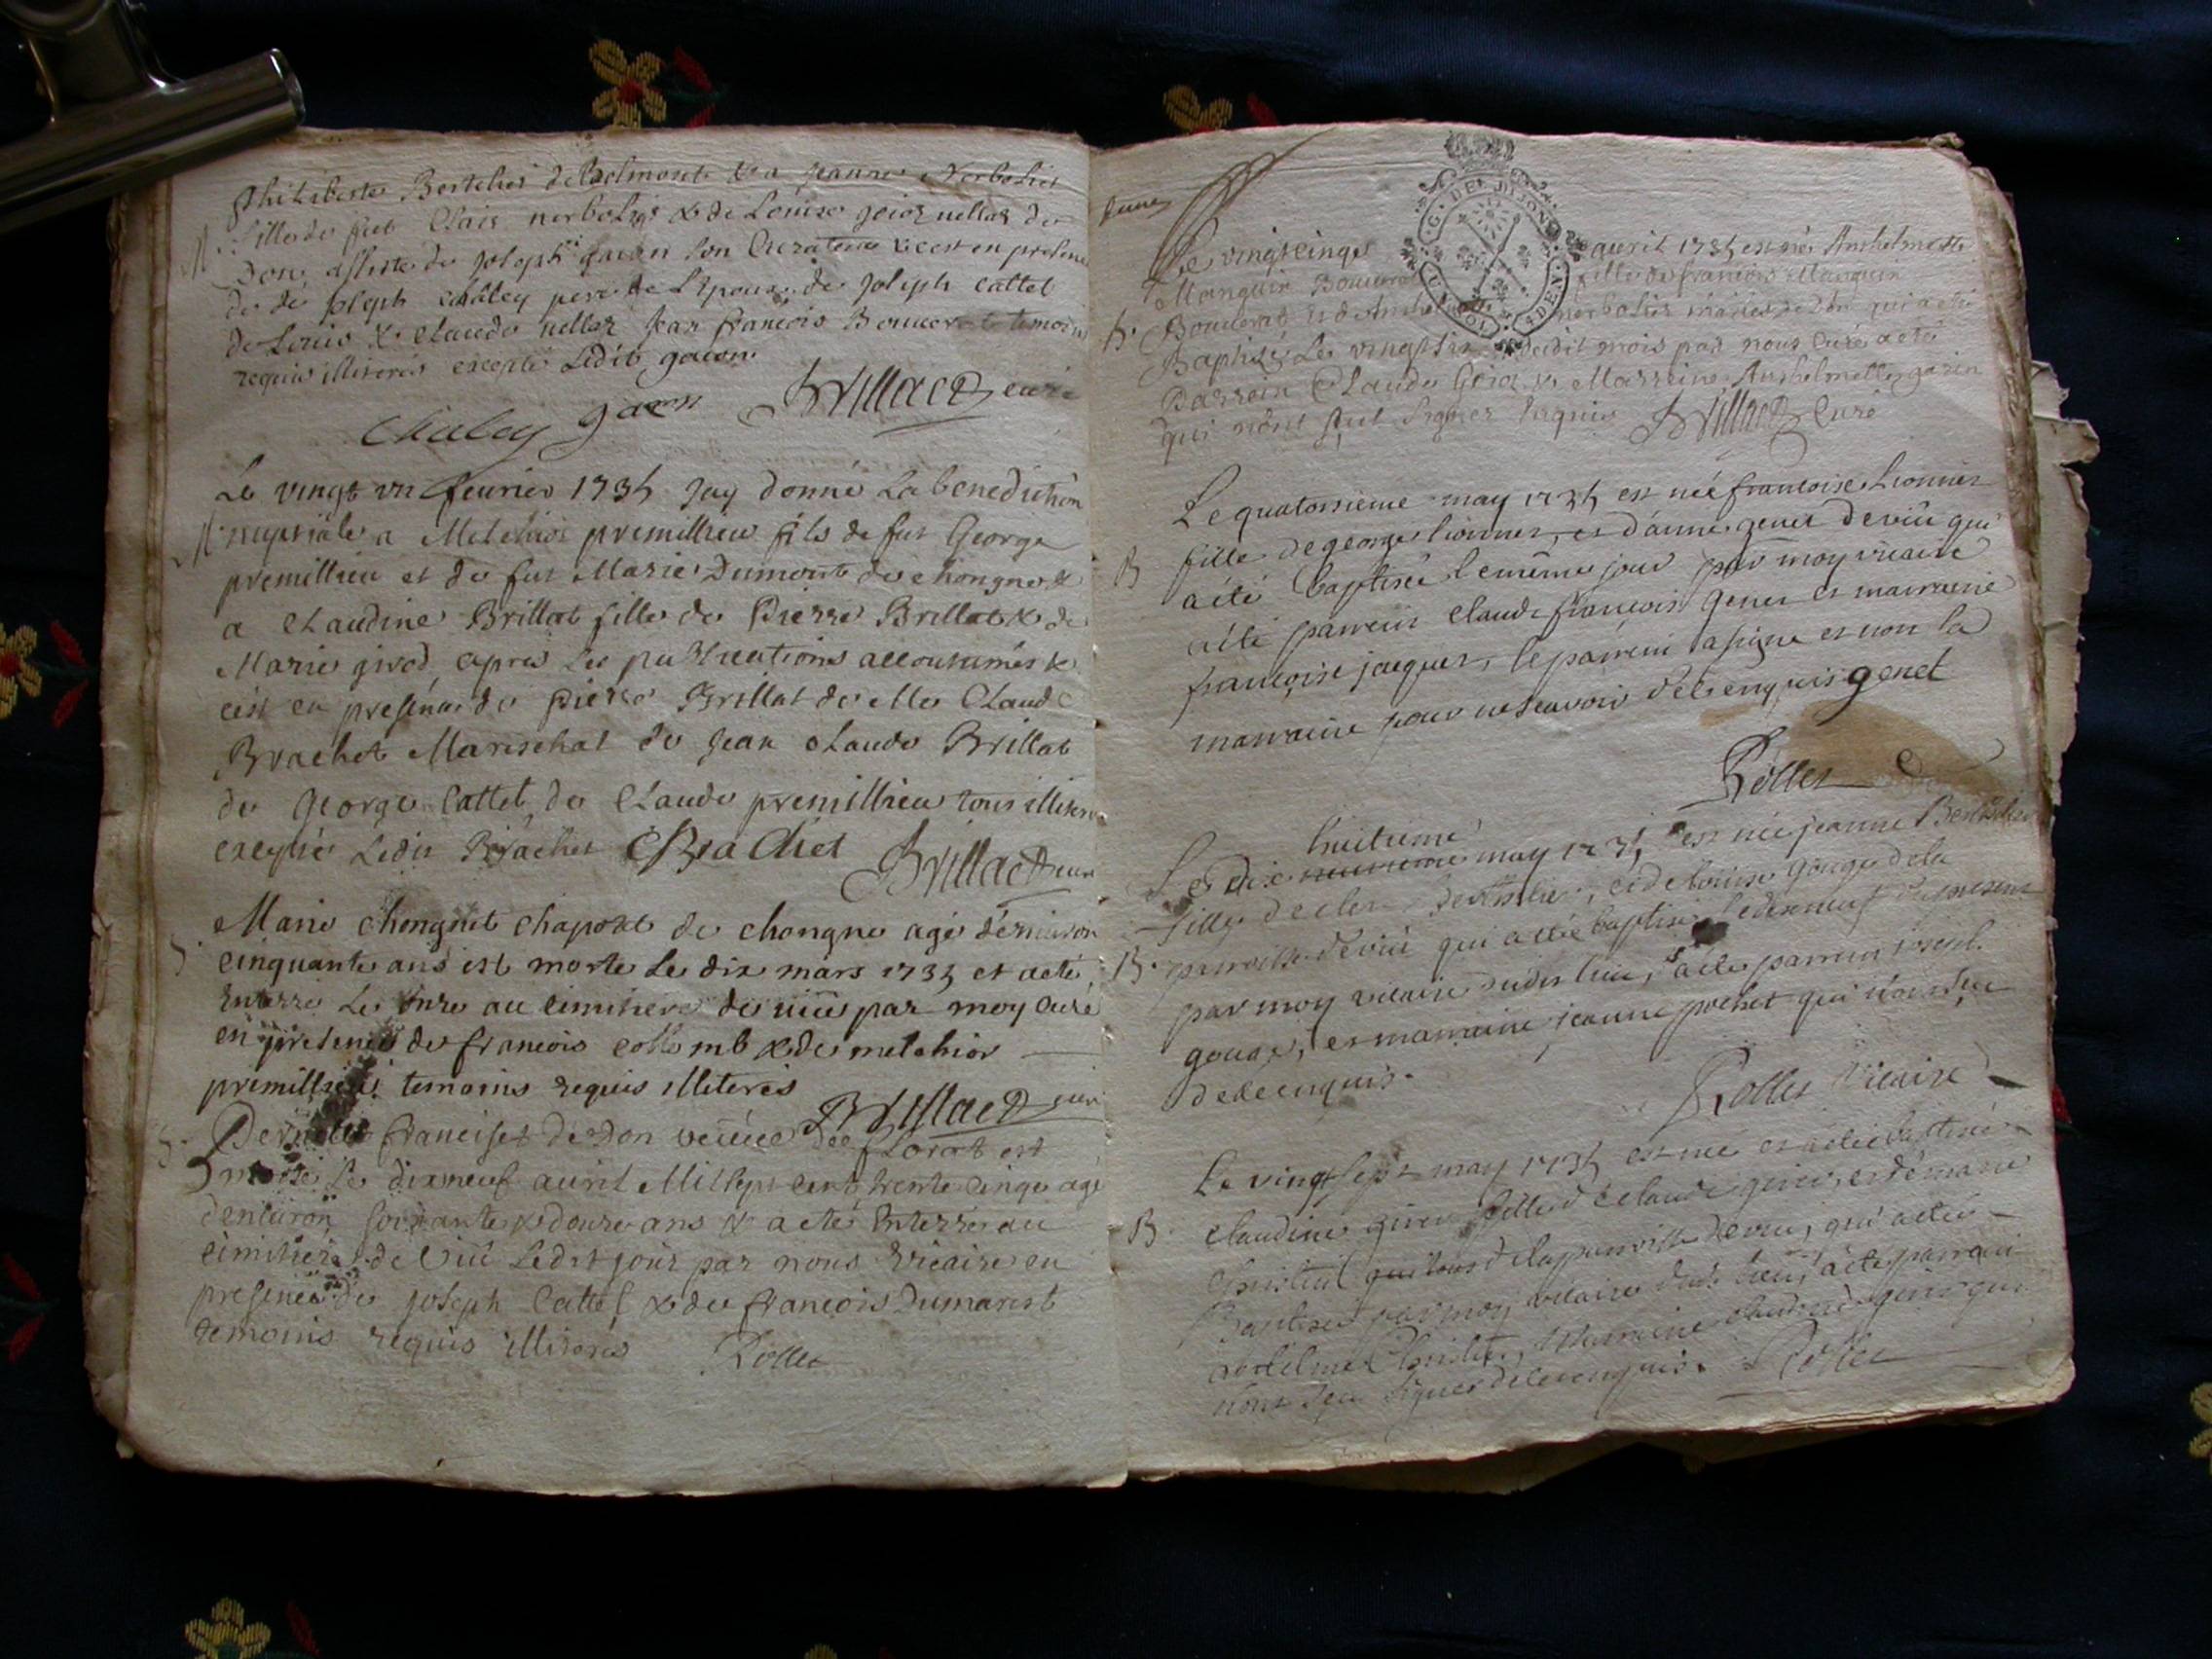 philiberte Berthier de Belmont & a jeanne Nerboliet
fille de fut Clair nerboliet & de Louise nellaz de
don assisté de joseph gavin son Curateur & cest en presence
de joseph Châley pere de L'Epouse de joseph Cattet
de Louis & Claude nellaz jean françois temoins
requis illiterés excepté Ledit gavin
Chaley gavin Brillat curé
Le vingt un feurier 1735 Jay donné La benediction
nuptiale a Melchior premillieu fils de fut George
premillieu et de fut Marie Dumont de chongne &
a Claudine Brillat fille de Pierre Brillat & de
Marie girod, apres Les publications accoutumés &
cest en presence de pierre Brillat de Me Claude
Brachet Mareschal de Jean Claude Brillat
de George Cattet de Claude premillieu tous illiteres
excepté Ledit Brachet CBrachet Brillat curé
Marie chongnet chapot de chongne agé dénuiron
cinquante ans est morte Le dix mars 1735 et acté
Enterré Le onze au cimitiere de uiü par moy Curé
en presence de francois collomb & de melchior
premillieu temoins requis illiterés
Brillat curé
francise de Don veüue de florat est
morte Le dixneuf auril Mil sept cent trente cinq agé
denuiron soixante & douze ans & a eté Enterré au
cimitiere de Viü Ledit jour par nous vicaire en
presence de joseph Cattet & de francois Dumarest
temoins requis illiterés Rollet
Le vingtcinq auril 1735 est née Anthelmette
Manguin Bouuerat fille de francois Manguin
B. Bouuerat et nerboliet mariés de Don qui a eté
Baptizé Le vingt six dudit mois par nous Curé a eté
Parrein Claude & Marreine Anthelmette gavin
qui n'ont sçut signer Enquis Brillat Curé
Le quatorsieme may 1735 est née francoise Lionnet
B fille de george Lionnet, et d'anne genet de viü qui
a été baptisée le même jour par moy vicaire
a été parrein claude françois genet et marraine
françoise jacquet, le parrein a signé et non la
marraine pour ne scavoir de ce enquis genet
Rollet
huitieme
Le dix may 1735 est née jeanne Berthelier
fille de clair Berthelier, et de louise gouge de la
B. parroisse de viü qui a été baptisée le dixneuf du present
par moy vicaire dudit lieu, a été parrein joseph
gouge, et marraine jeanne pochet qui n'ont sçu
de ce enquis.
Rollet Vicaire
Le vingt sept may 1735 est née et a été baptisée
B. claudine giret fille de claude giret, et de marie
de la parroisse de viü, qui a été
Baptisée par moy vicaire dudit lieu, a été parrein
Anthelme et Marraine claudine giret qui
n'ont sçu signer de ce enquis. Rollet